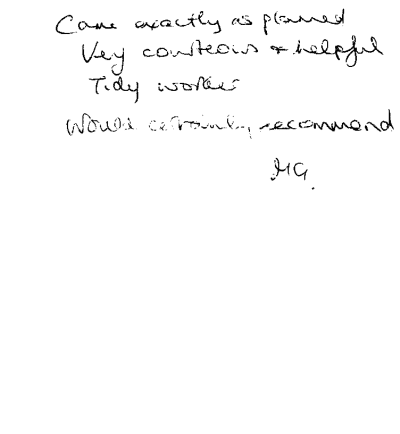 Came exactly as planned
Very courteous + helpful
Tidy worker
Would certainly recommend
MG.